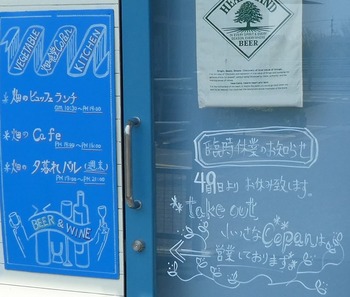 VEGETABLE
畑のCopan
KITCHEN
畑のビュッフェランチ
AM 10:30 ~ PM 14:00
畑のCafe
PM 14:00 ~ PM 17:00
畑の夕暮れバル(週末)
PM 17:00 ~ PM 21:00
BEER & WINE
HEARTLAND
BEER
臨時休業のお知らせ
より お休み致します。
take out
小いさなCopanは
営業しております